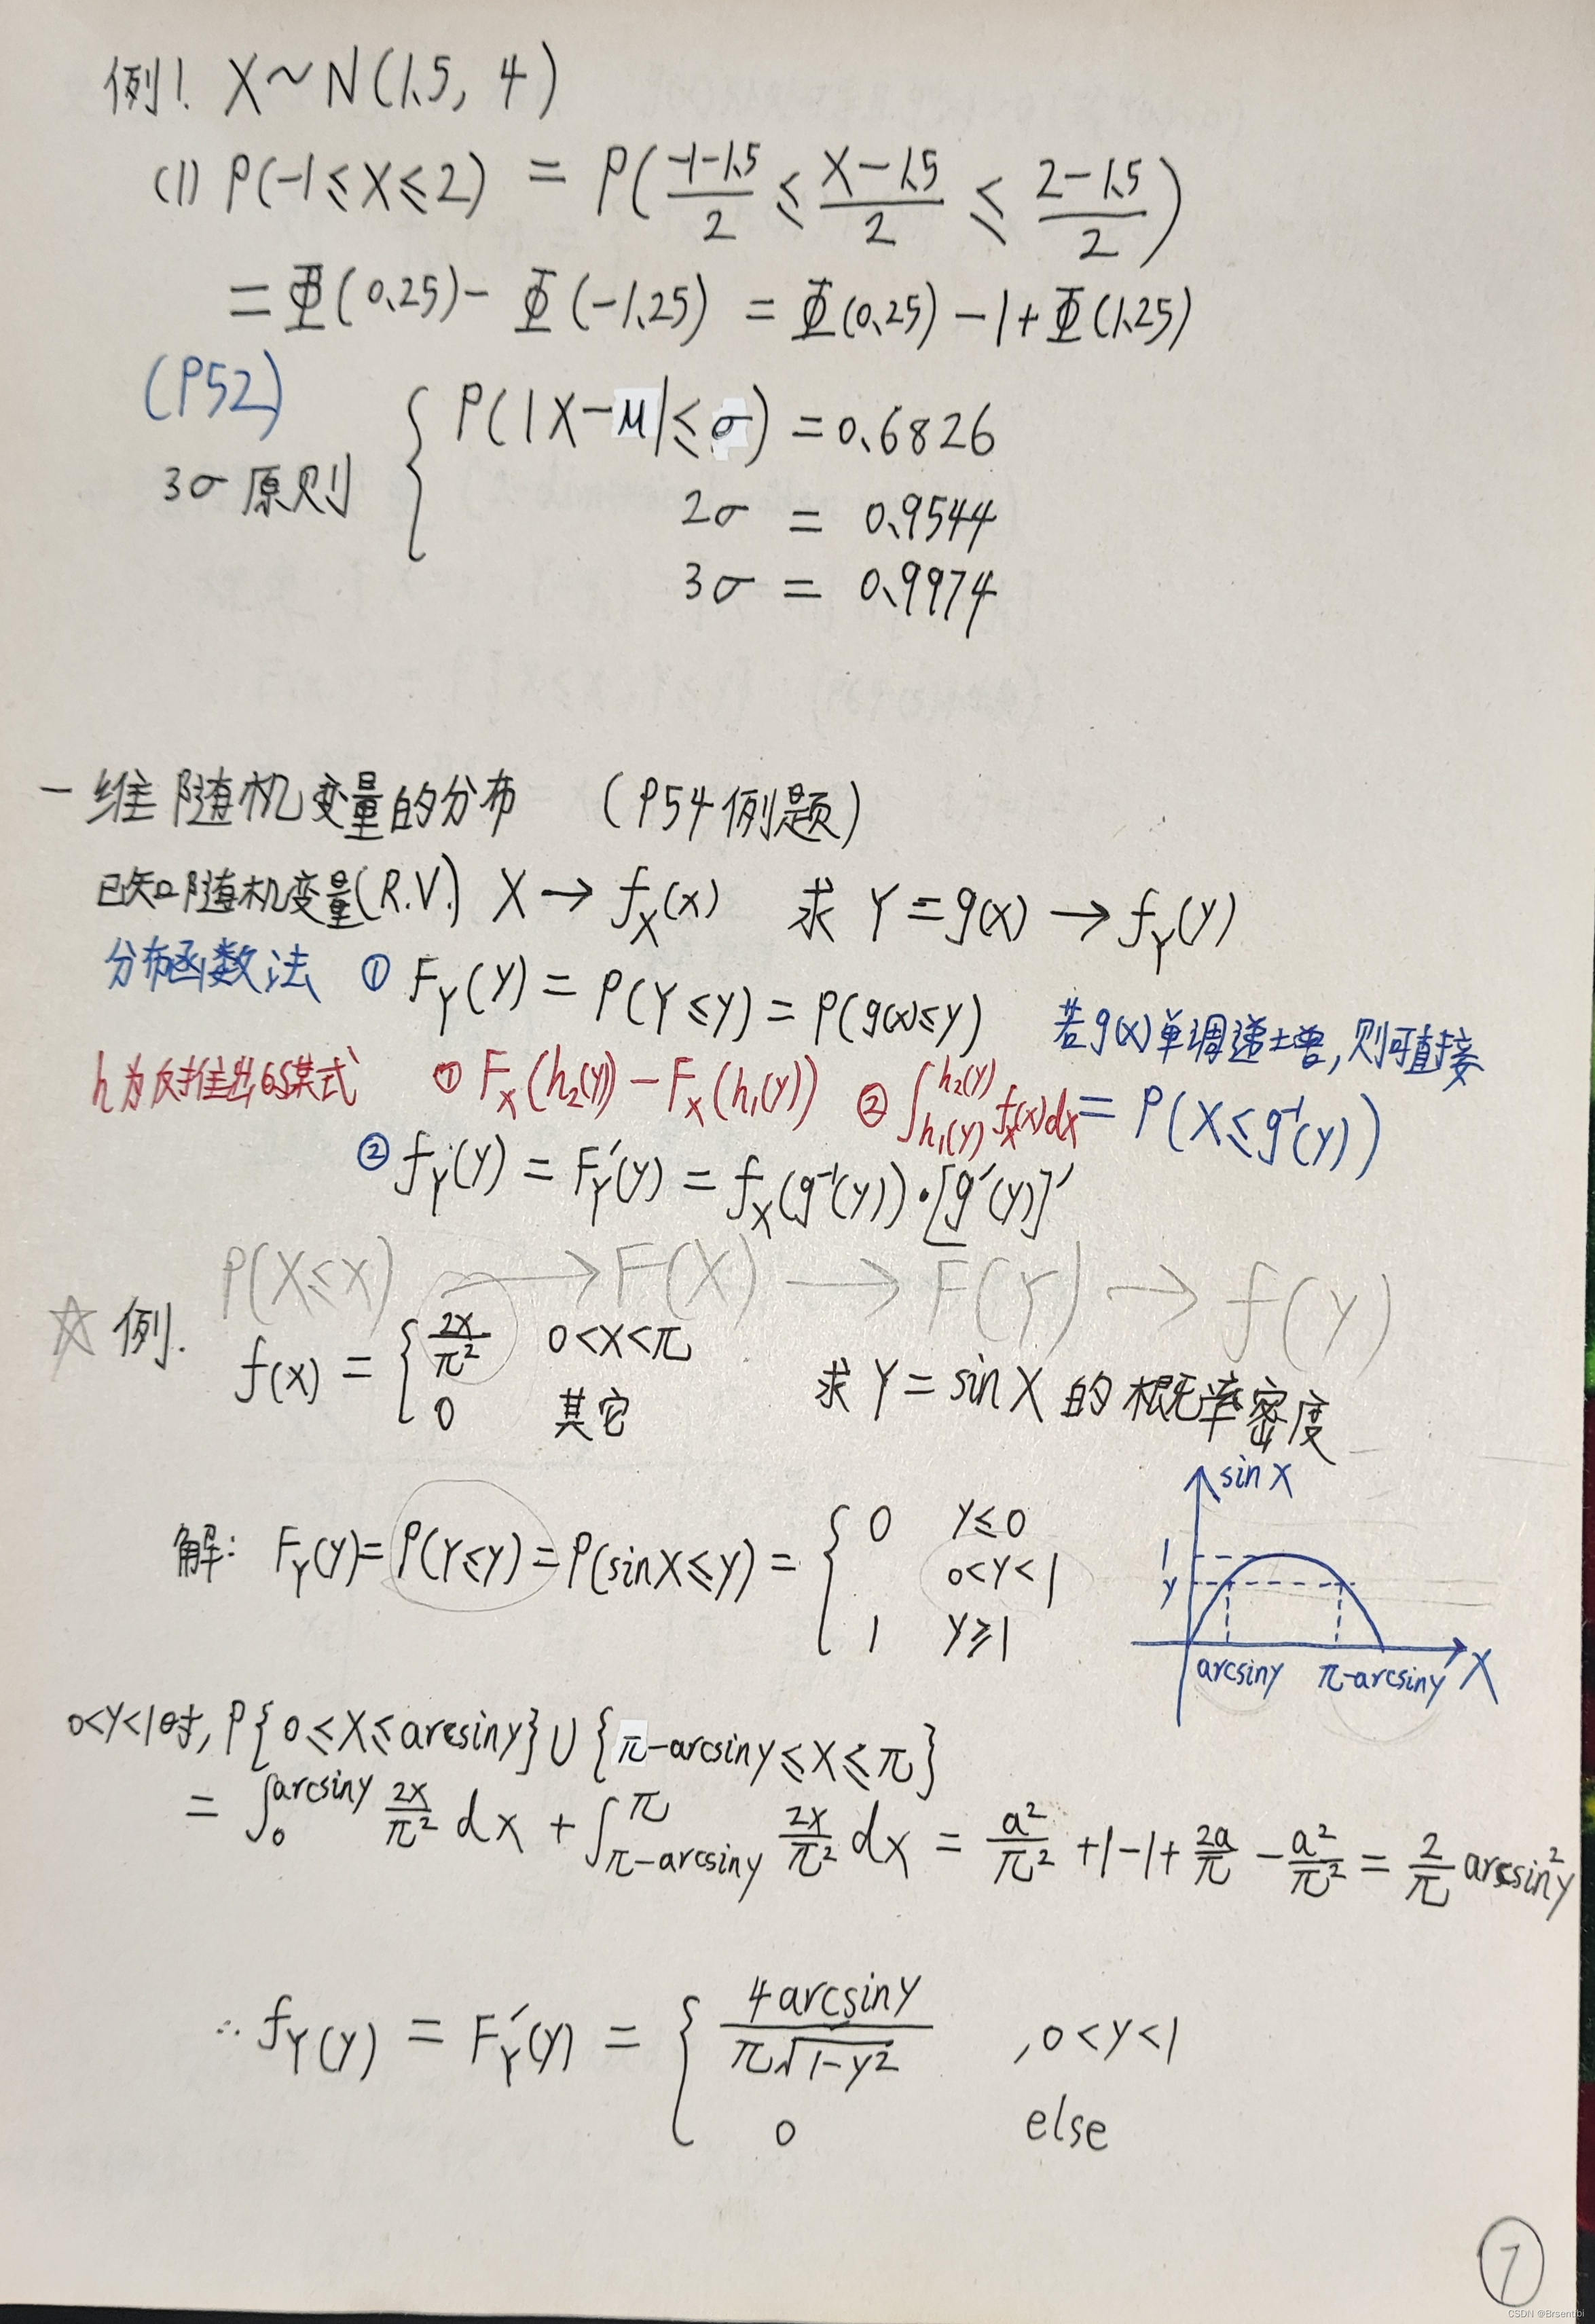 例1. X~N(1.5, 4)
(1) P(-1≤X≤2) = P(\frac{-1-1.5}{2} ≤ \frac{X-1.5}{2} ≤ \frac{2-1.5}{2})
=Φ(0.25)-Φ(-1.25) = Φ(0.25)-1+Φ(1.25)
(P52)
3σ原则 { P(|X-μ|≤σ) = 0.6826
2σ = 0.9544
3σ = 0.9974
一维随机变量的分布 (P54例题)
已知随机变量(R.V.) X→f_X(x) 求 Y=g(x)→f_Y(y)
分布函数法 ① F_Y(y) = P(Y≤y) = P(g(x)≤y) 若g(x)单调递增,则可直接
h为反推出的某式 ① F_X(h₂(y))-F_X(h₁(y)) ② ∫_{h₁(y)}^{h₂(y)} f_X(x)dx = P(X≤g⁻¹(y))
② f_Y(y) = F_Y'(y) = f_X(g⁻¹(y))·[g'(y)]'
P(X≤x) → F(X) → F(Y) → f(y)
☆例. f(x) = { \frac{2x}{π²} 0<x<π
0 其它 求Y=sinX的概率密度
解: F_Y(y)=P(Y≤y)=P(sinX≤y) = { 0 y≤0
0<y<1
1 y≥1
sin X
1
y
arcsiny π-arcsiny X
0<y<1时, P{0≤X≤arcsiny}∪{π-arcsiny≤X≤π}
= ∫_0^{arcsiny} \frac{2x}{π²} dx + ∫_{π-arcsiny}^{π} \frac{2x}{π²} dx = \frac{a²}{π²} +1-1+ \frac{2a}{π} - \frac{a²}{π²} = \frac{2}{π} arcsin²y
∴ f_Y(y) = F_Y'(y) = { \frac{4arcsiny}{π√(1-y²)} ,0<y<1
0 else
7
CSDN @Brsentibi